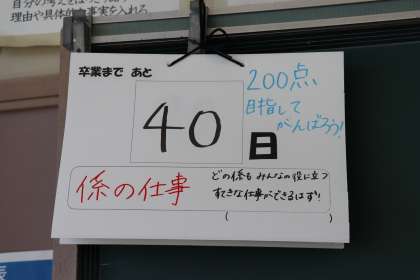 自分の考えをは
理由や具体的な事実を入れろ
卒業まで あと
40
日
200点
目指して
がんばろう!
係の仕事
どの係も みんなの役に立つ
すてきな仕事ができるはず!
(          )
表